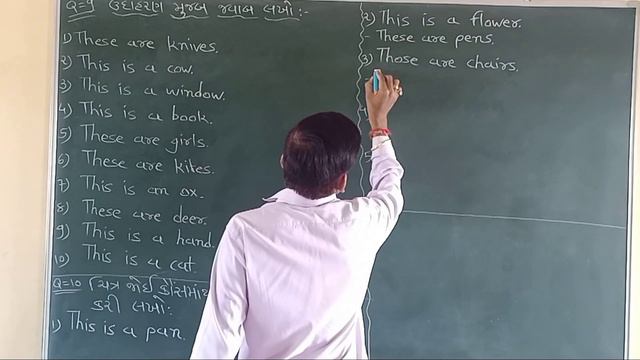 Q=9 ઉદાહરણ મુજબ જવાબ લખો:-
1) These are knives.
2) This is a cow.
3) This is a window.
4) This is a book.
5) These are girls.
6) These are kites.
7) This is an ox.
8) These are deer.
9) This is a hand.
10) This is a cat.
Q=10 ચિત્ર જોઈ કૌંસમાંથ
કરી લખો:
1) This is a pan.
2) This is a flower.
- These are pens.
3) Those are chairs.
5